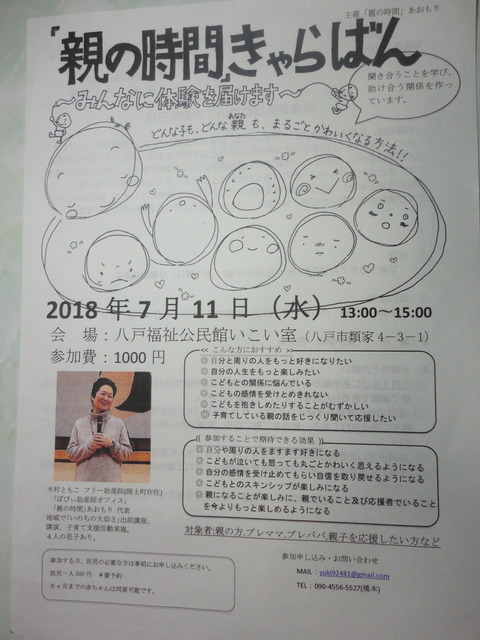 主催「親の時間」あおもり
「親の時間」きゃらばん
～みんなに体験を届けます～
聞き合うことを学び、
助け合う関係を作っ
ています。
どんな子も、どんな親(あなた)も、まるごとかわいくなる方法!!
2018年7月11日（水）13:00～15:00
会　場：八戸福祉公民館いこい室（八戸市類家4－3－1）
参加費：1000円
<< こんな方におすすめ >>
◎自分と周りの人をもっと好きになりたい
◎自分の人生をもっと楽しみたい
◎こどもとの関係に悩んでいる
◎こどもの感情を受けとめきれない
◎こどもを抱きしめたりすることがむずかしい
◎子育てしている親の話をじっくり聞いて応援したい
{{ 参加することで期待できる効果 }}
◎自分や周りの人をますます好きになる
◎こどもが泣いても怒っても丸ごとかわいく思えるようになる
◎自分の感情を受け止めてもらい自信を取り戻せるようになる
◎こどもとのスキンシップが楽しみになる
◎親になることが楽しみに、親でいること及び応援者でいること
を今よりもっと楽しめるようになる
木村ともこ フリー助産師(階上町在住)
「ぱぴぃ助産師オフィス」
「親の時間」あおもり 代表
地域で「いのちの大切さ」出前講座、
講演、子育て支援活動実施。
４人の息子あり。
対象者:親の方,プレママ,プレパパ,親子を応援したい方など
参加する方、託児の必要な方は事前にお申し込みください。
託児一人500円　＊要予約
６ヶ月までの赤ちゃんは同室可能です。
参加申し込み・お問い合わせ
MAIL：yuki92481@gmail.com
TEL：090-4556-5527(橋本)